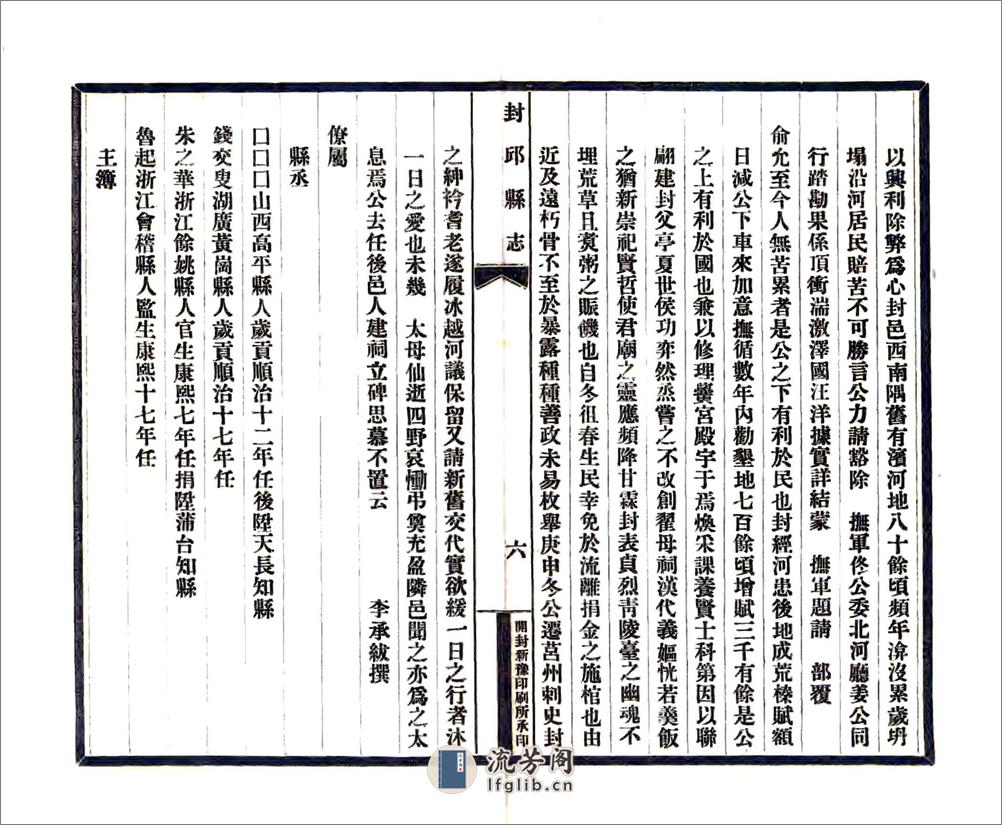 以興利除弊爲心封邑西南隅舊有濱河地八十餘頃頻年渰沒累歲坍
塌沿河居民賠苦不可勝言公力請豁除　撫軍佟公委北河廳姜公同
行踏勘果係頂衝湍激澤國汪洋據實詳結蒙　撫軍題請　部覆
俞允至今人無苦累者是公之下有利於民也封經河患後地成荒榛賦額
日減公下車來加意撫循數年內勸墾地七百餘頃增賦三千有餘是公
之上有利於國也兼以修理黌宮殿宇于焉煥采課養賢士科第因以聯
翩建封父亭夏世侯功弈然烝嘗之不改創翟母祠漢代義嫗恍若羹飯
之猶新崇祀賢哲使君廟之靈應頻降甘霖封表貞烈青陵臺之幽魂不
埋荒草且煑粥之賑饑也自冬徂春生民幸免於流離捐金之施棺也由
近及遠朽骨不至於暴露種種善政未易枚舉庚申冬公遷莒州刺史封
封邱縣志
六
開封新豫印刷所承印
之紳衿耆老遂履冰越河議保留又請新舊交代實欲緩一日之行者沐
一日之愛也未幾　太母仙逝四野哀慟弔奠充盈隣邑聞之亦爲之太
息焉公去任後邑人建祠立碑思慕不置云　李承紱撰
僚屬
縣丞
口口口山西高平縣人歲貢順治十二年任後陞天長知縣
錢交叟湖廣黃崗縣人歲貢順治十七年任
朱之華浙江餘姚縣人官生康熙七年任捐陞蒲台知縣
魯起浙江會稽縣人監生康熙十七年任
主簿
流芳阁
lfglib.cn